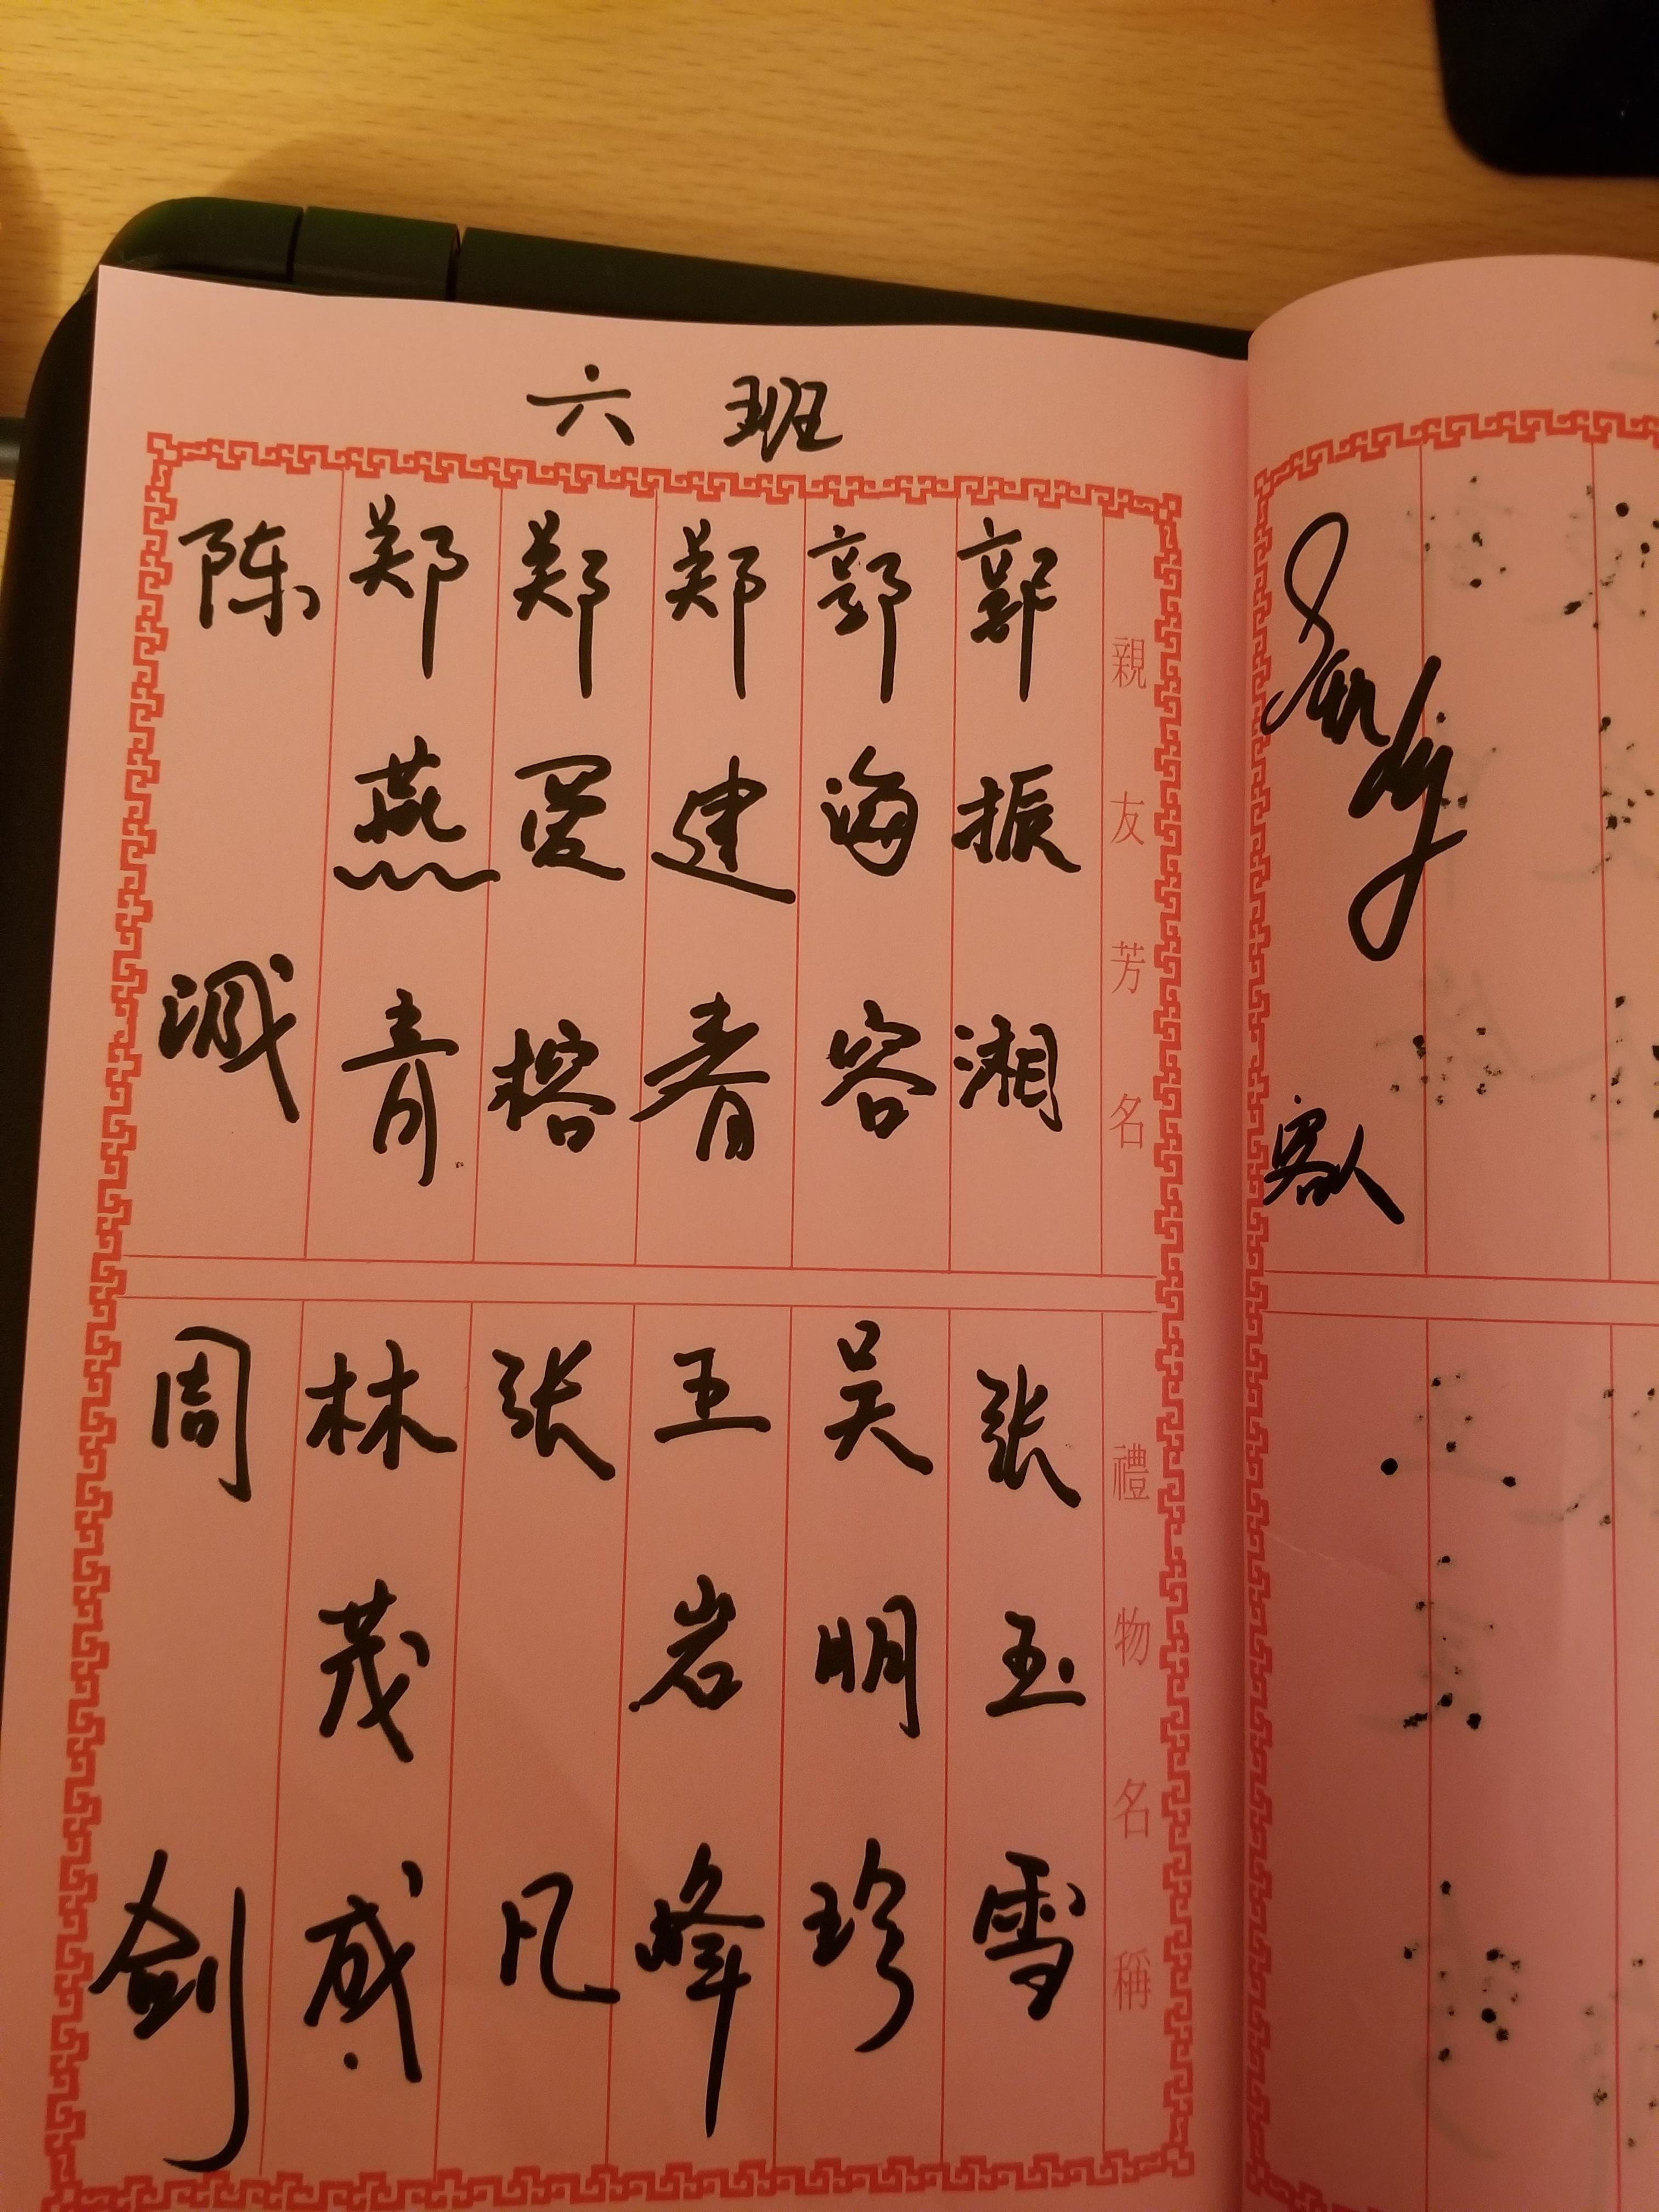 六班
親友芳名
郭振湘
郭海容
郑建青
郑爱榕
郑燕青
陈
禮物名稱
张玉雪
吴明珍
王岩峰
张凡
林茂盛
周剑
客人